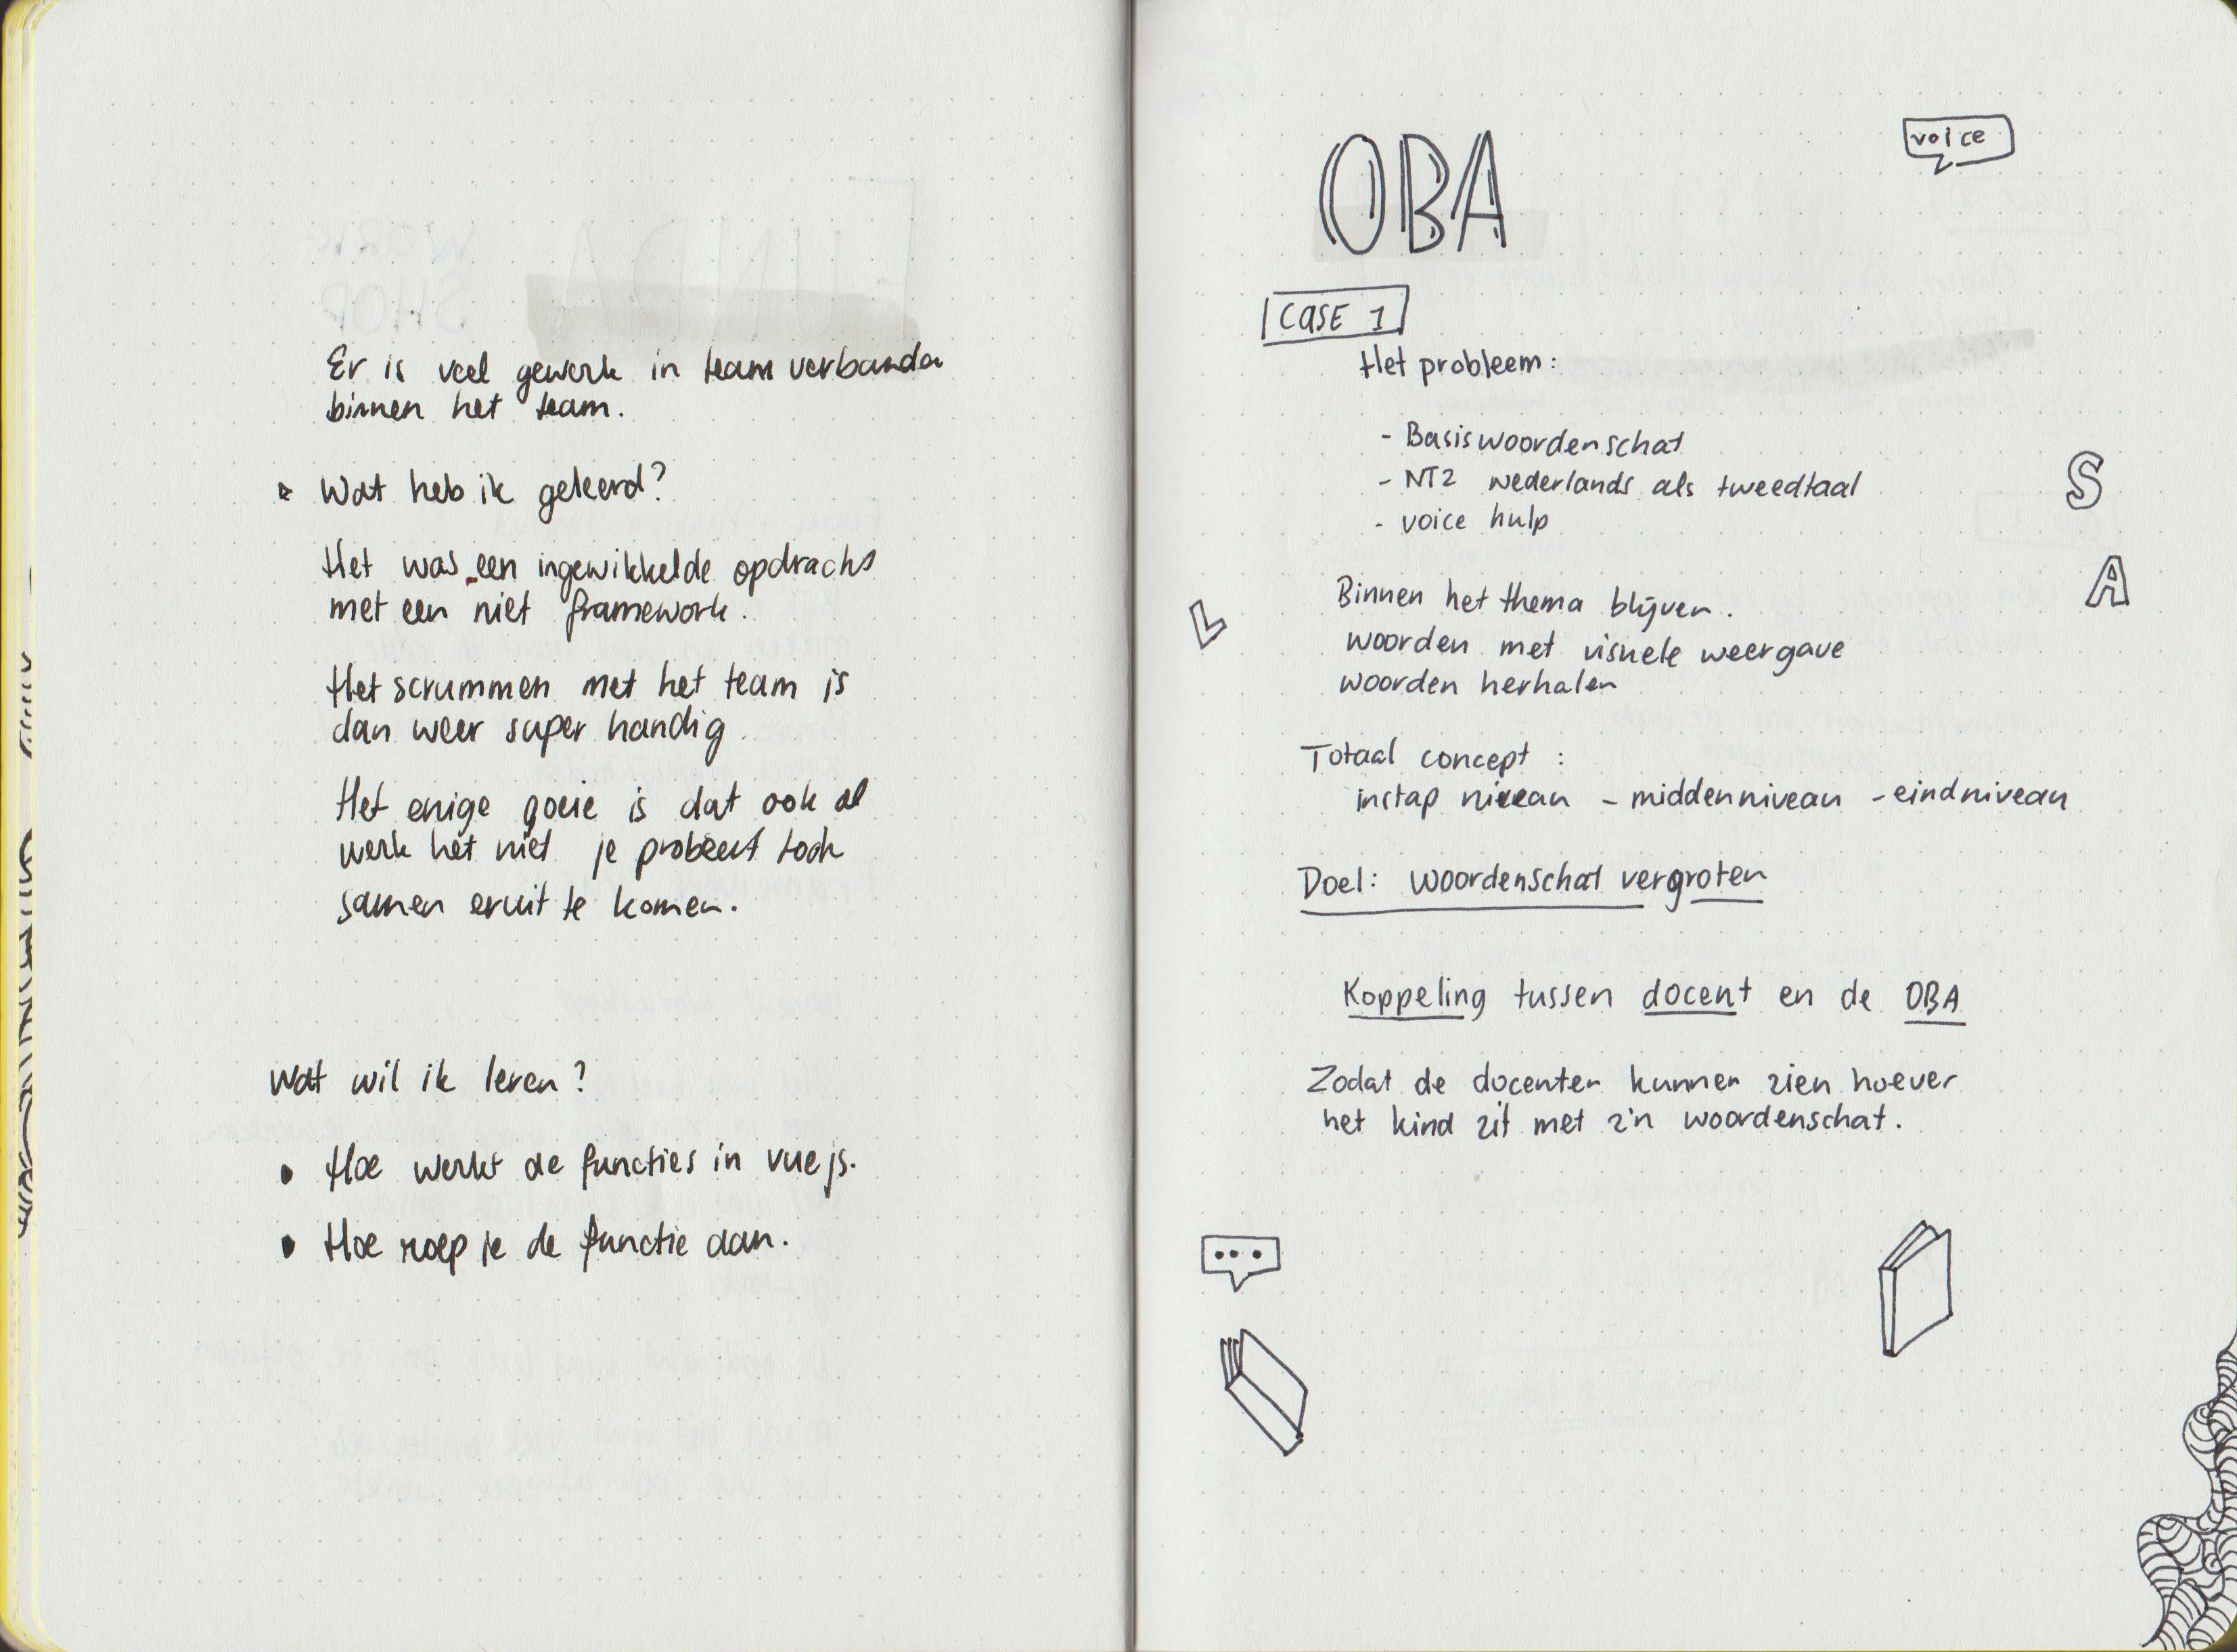 Er is veel gewerk in team verbanden
binnen het team.
Wat heb ik geleerd?
Het was een ingewikkelde opdracht
met een niet framework.
Het scrummen met het team is
dan weer super handig.
Het enige goeie is dat ook al
werk het niet je probeert toch
samen eruit te komen.
Wat wil ik leren?
• Hoe werkt de functies in vue js.
• Hoe roep je de functie aan.
OBA
voice
CASE 1
Het probleem:
- Basiswoordenschat
- NT2 nederlands als tweedtaal
- voice hulp
S
A
L
Binnen het thema blijven.
woorden met visuele weergave
woorden herhalen
Totaal concept :
instap niveau - middenniveau - eindniveau
Doel: woordenschat vergroten
Koppeling tussen docent en de OBA
Zodat de docenten kunnen zien hoever
het kind zit met z'n woordenschat.